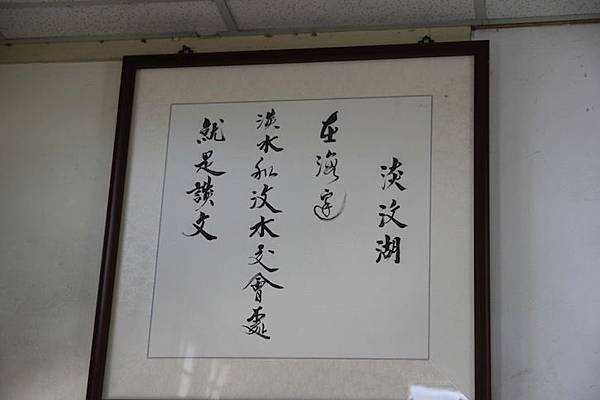 淡汶湖
在海邊
淡水和汶水交會處
就是談文